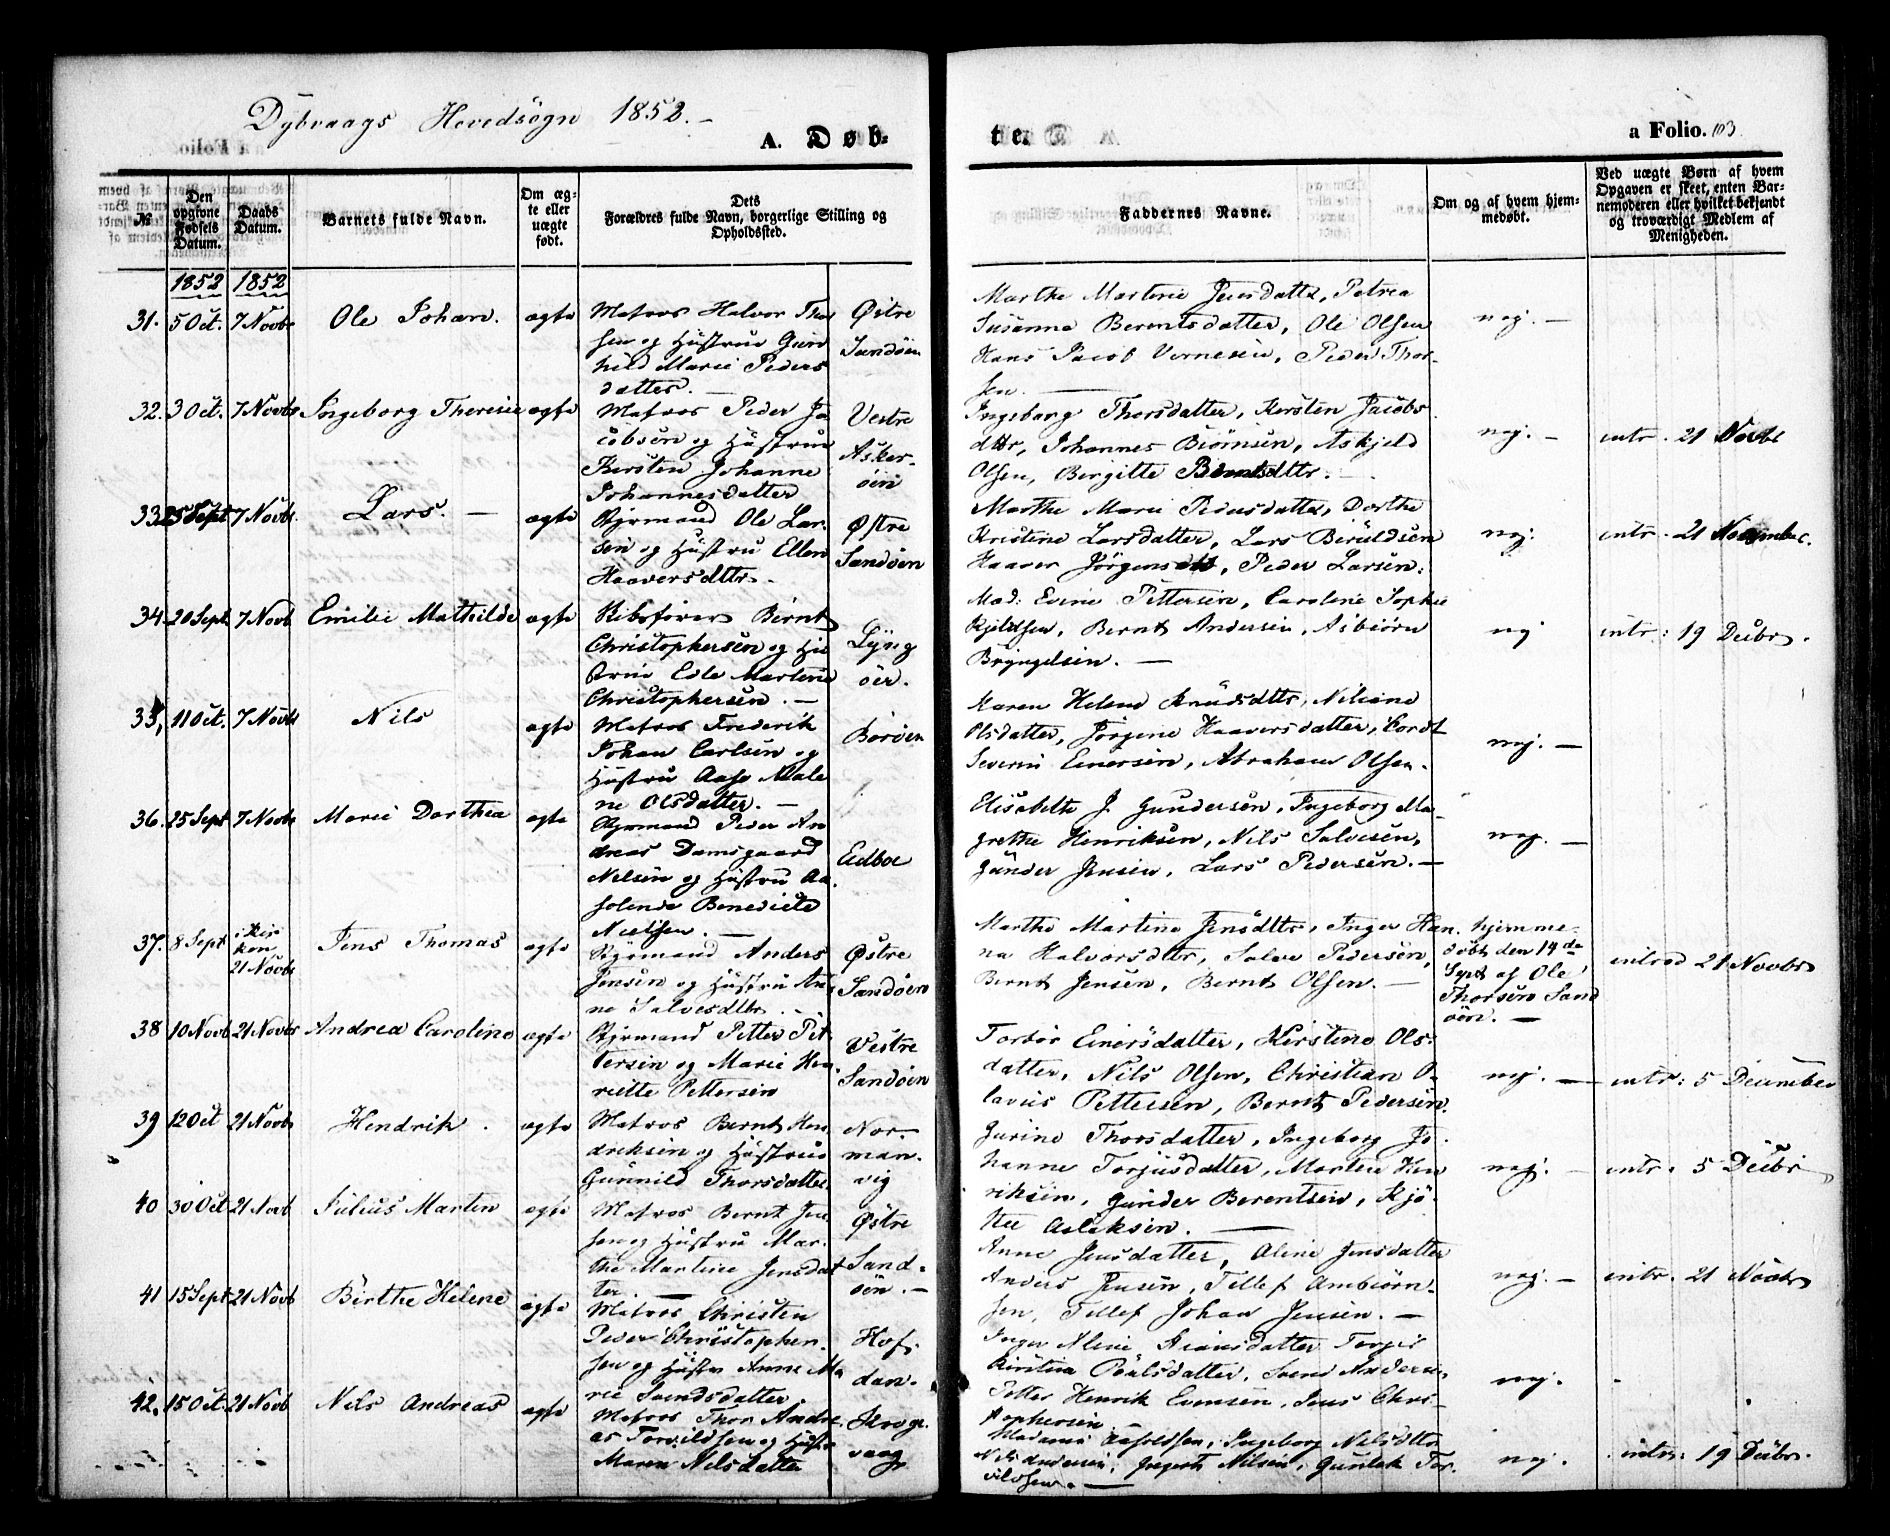 Dybvaags Hovedsogn 1852.-
A. Døb-
te.
a Folio. 103
№
Den opgivne Fødsels Datum.
Daabs Datum.
Barnets fulde Navn.
Om ægte eller uægte født.
Dets Forældres fulde Navn, borgerlige Stilling og Opholdssted.
Faddernes Navne.
Om og af hvem hjemmedøbt.
Ved uægte Børn af hvem Opgaven er skeet, enten Barnemoderen eller hvilket bekjendt og troværdigt Medlem af Menigheden.
1852 1852
31. 5 Oct. 7 Novbr Ole Johan. ægte
Matros Halvor Thor
sen og Hustrue Gun
hild Marie Peders
datter. —
Østre
Sandøen
Marthe Marterie Jensdatter, Petrea
Susanna Berentsdatter, Ole Olsen
Hans Jacob Vernesen, Peder Thor-
sen. —
nej. —
32. 3 Oct. 7 Novbr Ingeborg Theresie ægte
Matros Peder Ja
cobsen og Hustrue
Kersten Johanne
Johannesdatter
Vestre
Asker-
øen
Ingeborg Thorsdatter, Kersten Jacobs
dttr, Johannes Biørnsen, Askjeld
Olsen, Birgitte Berntsdttr. —
nej. —
intr. 21 Novbr
33. 25 Sept 7 Novbr. Lars. — ægte
Styrmand Ole Lar
sen og Hustru Ellen
Haaversdttr.
Østre
Sandøen
Marthe Marie Pedersdatter, Dorthe
Kristine Larsdatter, Lars Beruldsen
Haaver Jörgensen, Peder Larsen.
nej.
intr. 21 November.
34. 20 Sept. 7 Novb Emilie Mathilde ægte
Skibsfører Bernt
Christophersen og Hu
strue Edle Marterie
Christophersen. —
Lyng
øer.
Mad: Evine Pettersen, Caroline Sophie
Kjeldsen, Bernt Andersen, Asbiørn
Bryngelsen. —
nej
intr: 19 Decbr.
35, 11 Oct. 7 Novbr Nils ægte
Matros Frederik
Johan Carlsen og
Hustru Aase Male
ne Olsdatter. —
Borøen
Maren Helene Knudsdttr, Niliane
Olsdatter, Jörgine Haaversdatter, Cordt
Severin Einersen, Abraham Olsen.
nej. —
36. 25 Sept 7 Novbr Marie Dorthea ægte
Styrmand Peder An
dreas Damsgaard
Nelsen og Hustru Aa
solende Benedicte
Nielsen. —
Eidboe
Elisabeth J. Gundersen, Ingeborg Ma-
grethe Henriksen, Nils Salvesen,
Gunder Jensen, Lars Pedersen. —
nej. —
37. 8 Sept i Kir
ken
21 Novbr Jens Thomas ægte
Styrmand Anders
Jensen og Hustru An
ne Salvesdttr.
Østre
Sandøen
Marthe Martine Jensdttr, Inger Han
na Halvorsdttr, Salve Pedersen,
Bernt Jensen, Bernt Olsen. —
hjemme-
døbt den 14de
Sept af Ole
Thorsen Sand
øen. —
introd 21 Novbr
38 10 Novb 21 Novbr Andrea Caroline ægte
Styrmand Petter Pet
tersen og Marie Hen
riette Pettersen
Vestre
Sandøen
Torbor Einersdatter, Kerstine Ols
datter, Nils Olsen, Christian O-
lavius Pettersen, Bernt Pedersen.
nej. —
intr: 5 December
39 12 Oct 21 Novbr Hendrik. ægte
Matros Bernt Hen
driksen og Hustrue
Gunnild Thorsdatter.
Nor-
man-
vig
Gurine Thorsdatter, Ingeborg Jo-
hanne Torjusdatter, Morten Hen
riksen, Gunder Berentsen, Kjö-
stel Aslaksen. —
nej. —
intr. 5 Decbr
40 30 Oct 21 Novb Julius Marten ægte
Matros Bernt Jen
sen og Hustru Mar-
the Martine Jensdat
ter. —
Østre
Sand-
øen. —
Anne Jensdatter, Aline Jensdatter
Anders Jensen, Tellef Ambiørn-
sen, Tellef Johan Jensen. —
nej. —
intr. 21 Novbr
41 15 Sept 21 Novb Birthe Helene ægte
Matros Christen
Peder Christopher-
sen og Hustr Anne Ma
rie Svendsdatter.
Hof-
dan.
Inger Aleni datter
Poulsdatter, Svend Andersen
Petter Henrik Evensen, Jens Chri-
stophersen
nej.
42. 15 Oct. 21 Novb Nils Andreas ægte
Matros Thor Andre
as Torvildsen og Hustr
Maren Nilsdatter
Krog-
vaag
Madame Aasoldsen, Ingeborg Nilsdttr
Nils Andersen, Gregert Nilsen, Gunlek Tor-
vildsen. —
nej.
intr: 19 Decbr.